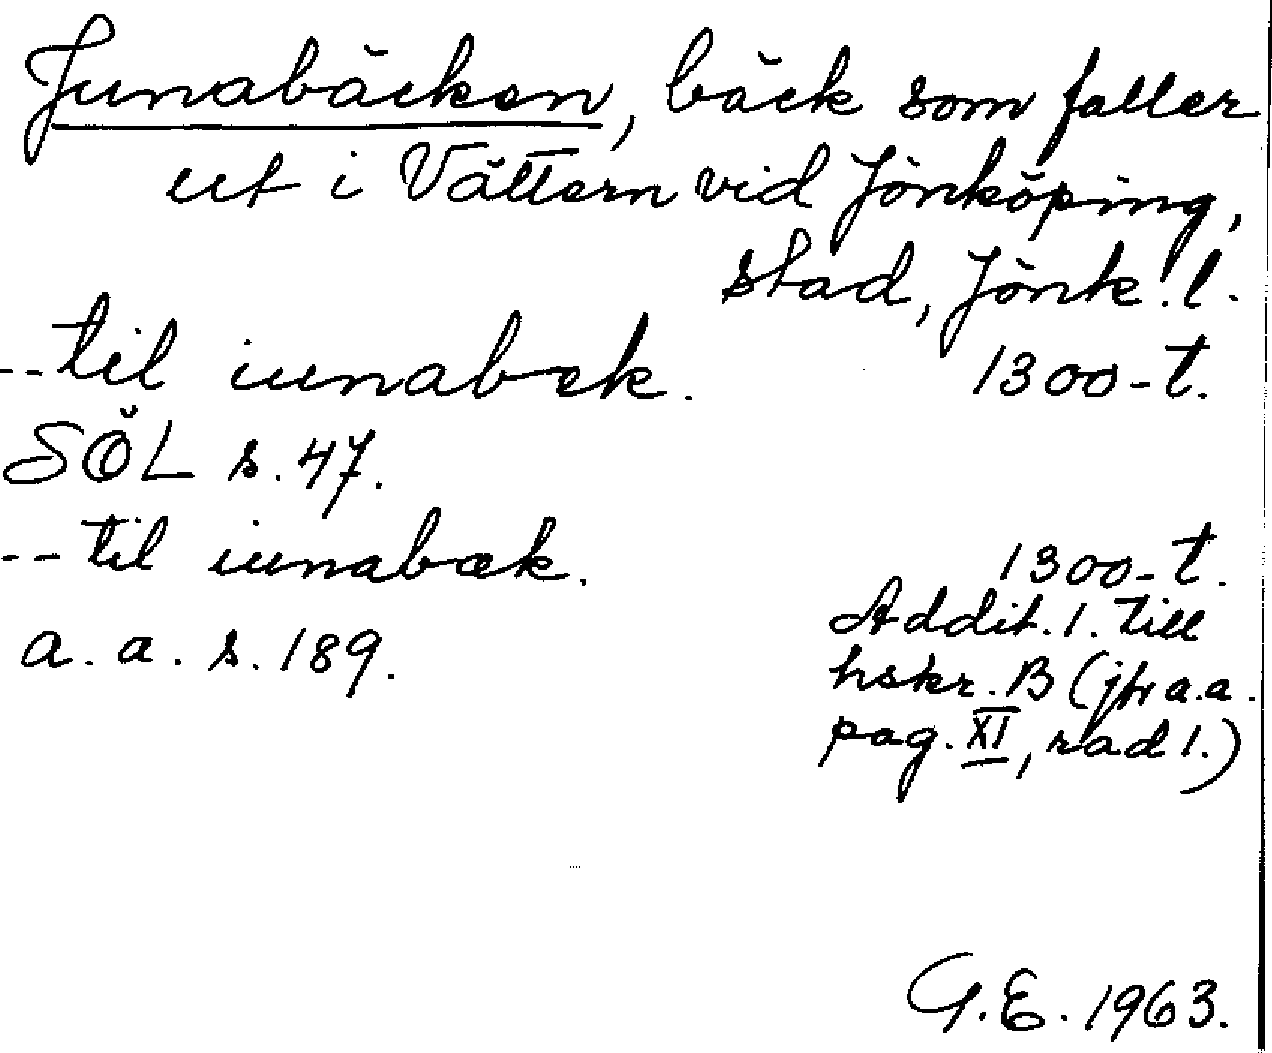 Junabäcken, bäck som faller
ut i Vättern vid Jönköping,
stad, Jönk. l.
-- til iunabæk. 1300-t.
SÖL s. 47.
-- til iunabæk. 1300-t.
Addit. 1. till
a. a. s. 189. hskr. B (jfr a.a.
pag. XI, rad 1.)
G.E. 1963.